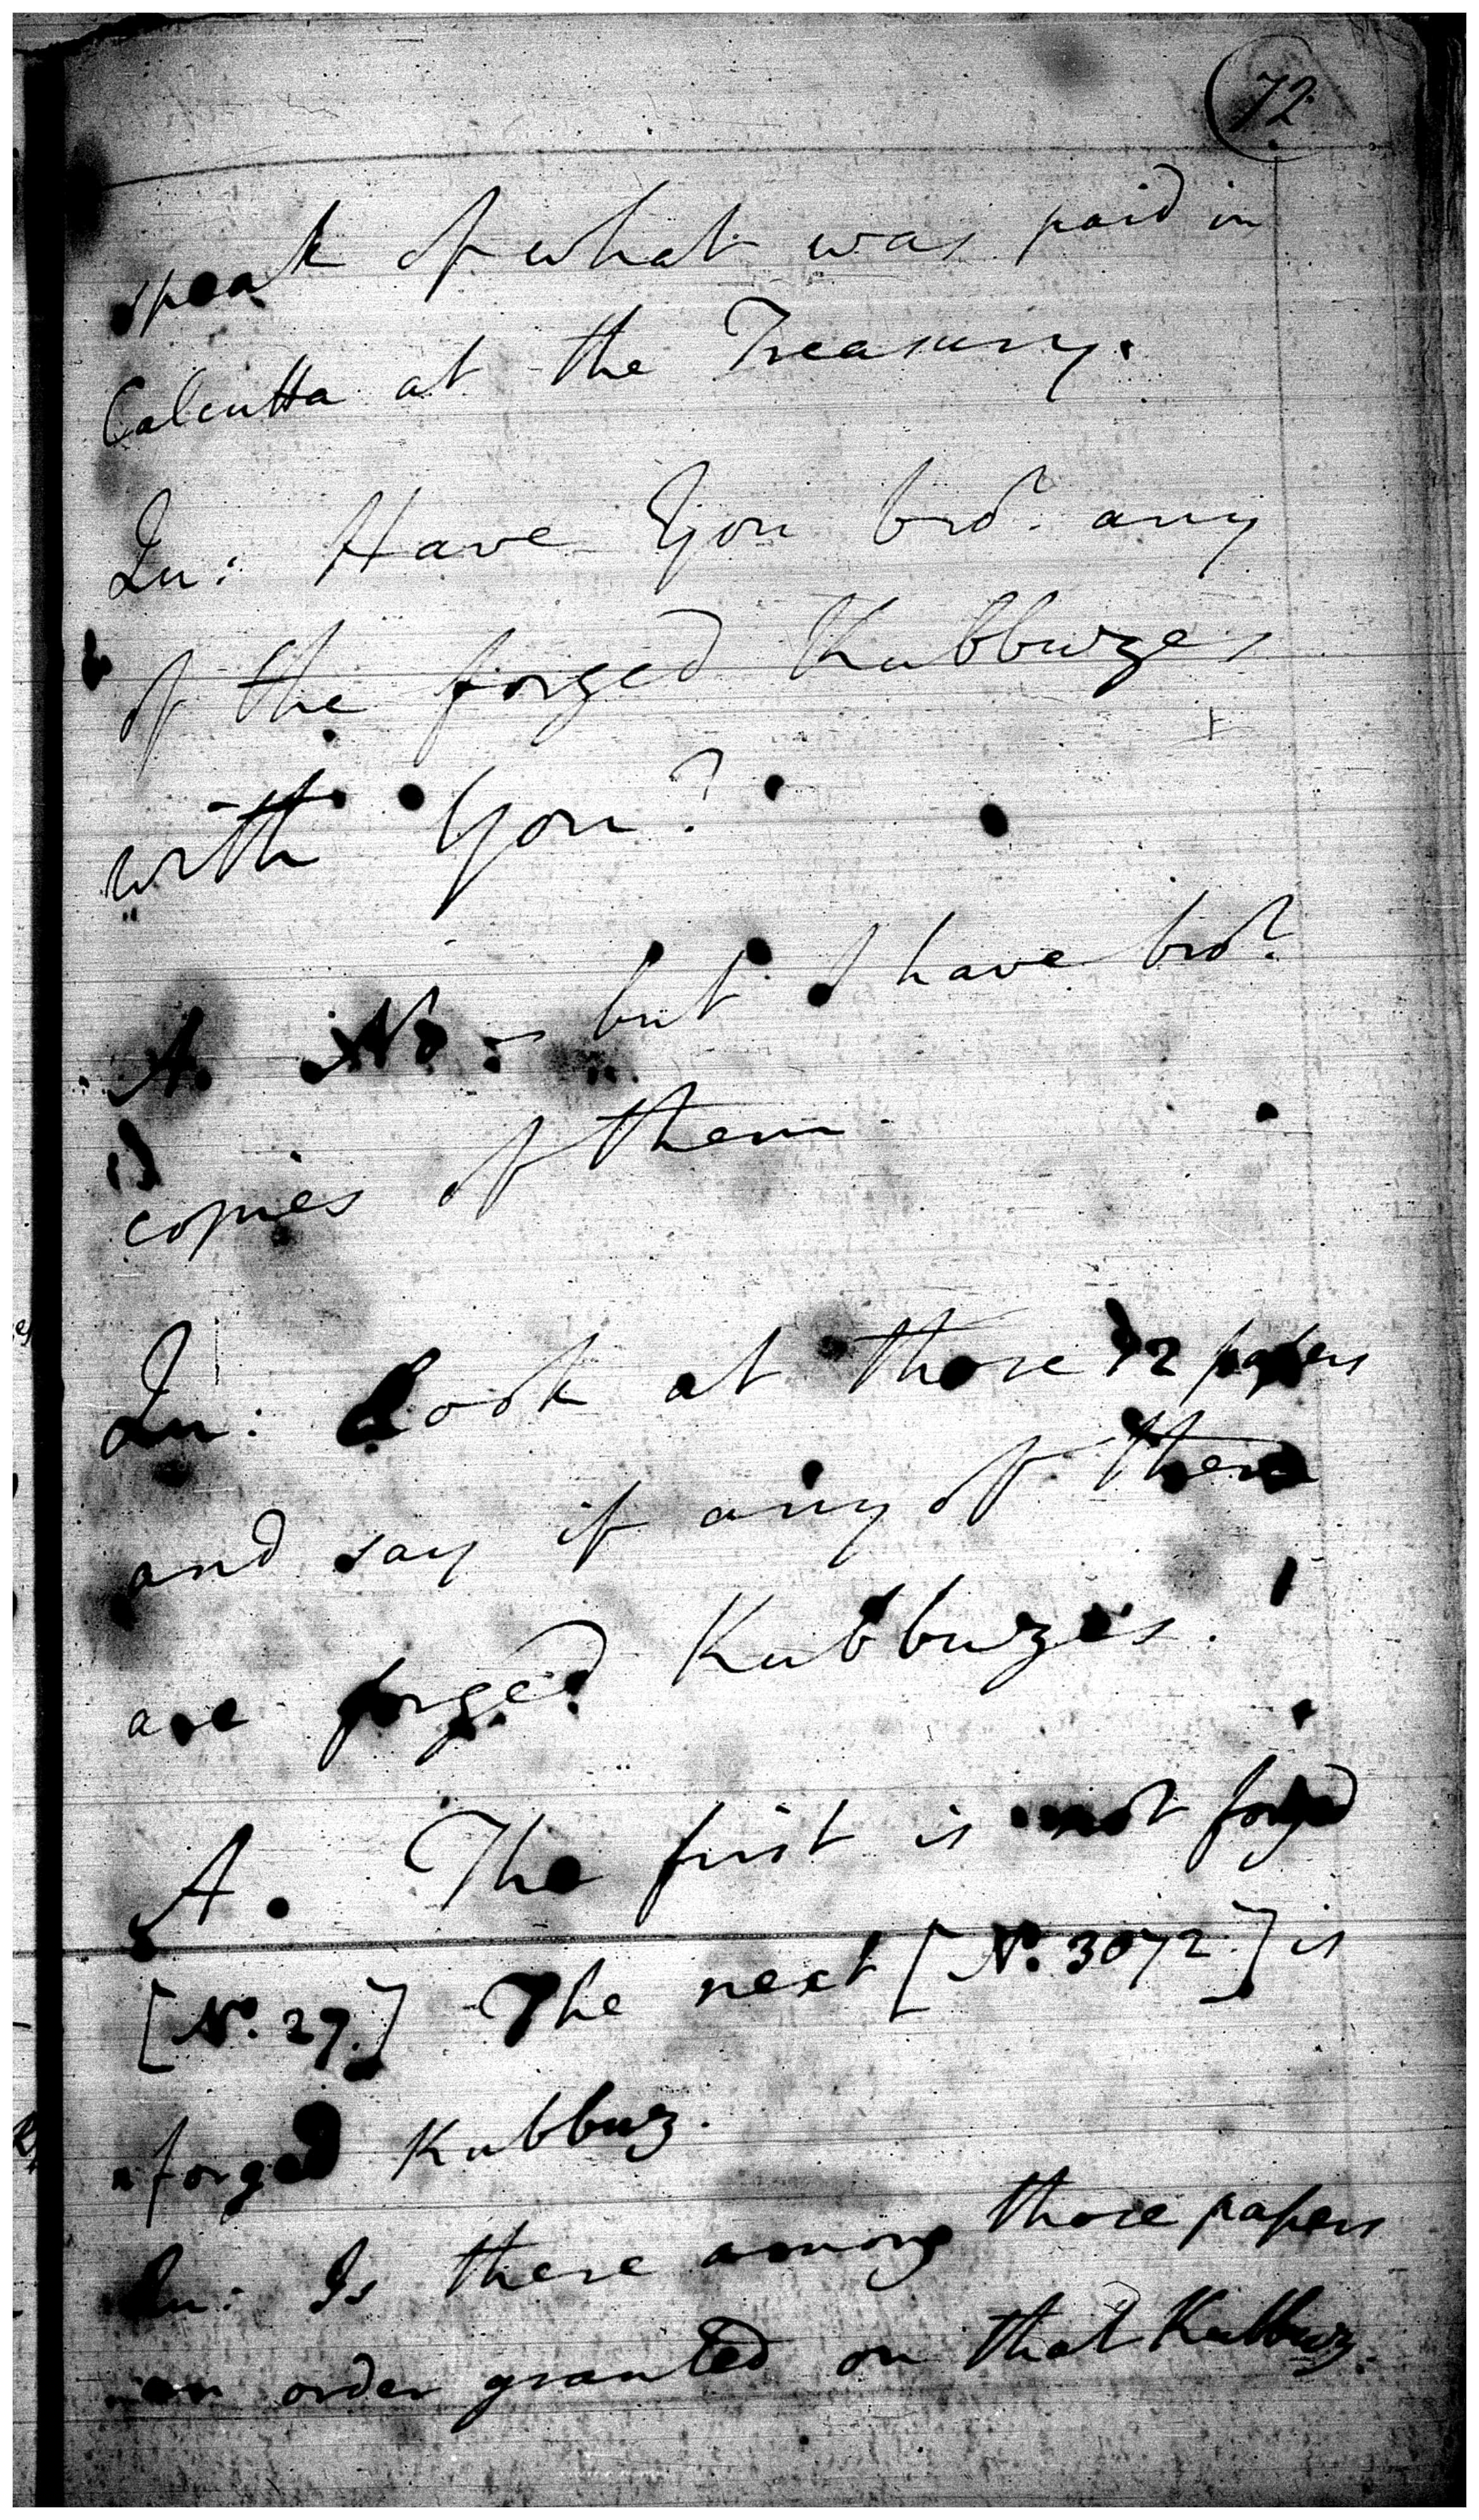 72
speak of what was paid in
Calcutta at the Treasury.
Qu: Have You bro.t any
of the forged Kubbuzes
with You?
A. No - but I have bro.t
copies of them.
Qu: Look at those 12 papers
and say if any of them
are forged Kubbuzes.
A. The first is not forged
[No. 27.] The next [No. 3072.] is
a forged Kubbuz.
Qu: Is there among those papers
an order granted on that Kubbuz.